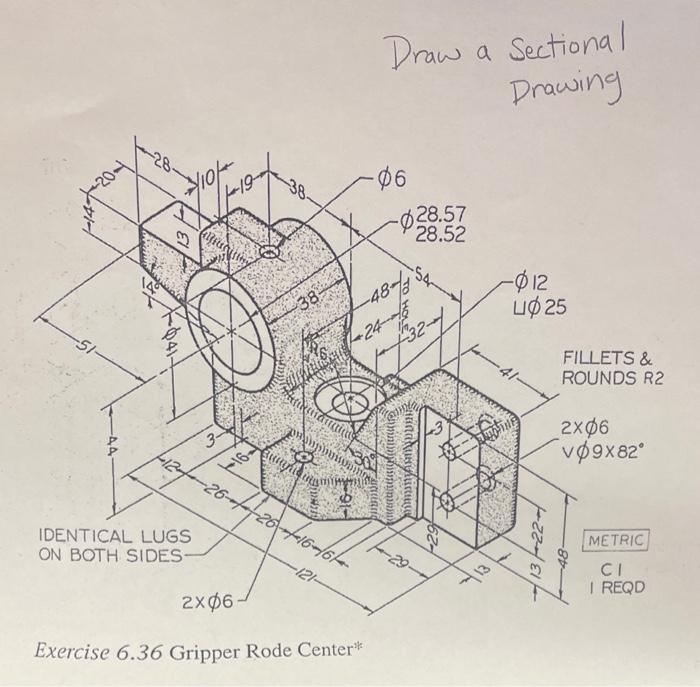 Draw a Sectional
Drawing
28
10
19
38
20
14
13
Ø6
Ø28.57
28.52
54
48
38
24
32
Ø12
⌴Ø25
14°
51
Ø41
R6
41
FILLETS &
ROUNDS R2
3
2XØ6
VØ9X82°
44
3
30°
12
26
26
16
16
16
29
29
13
13
22
48
121
IDENTICAL LUGS
ON BOTH SIDES
2XØ6
METRIC
CI
1 REQD
Exercise 6.36 Gripper Rode Center*